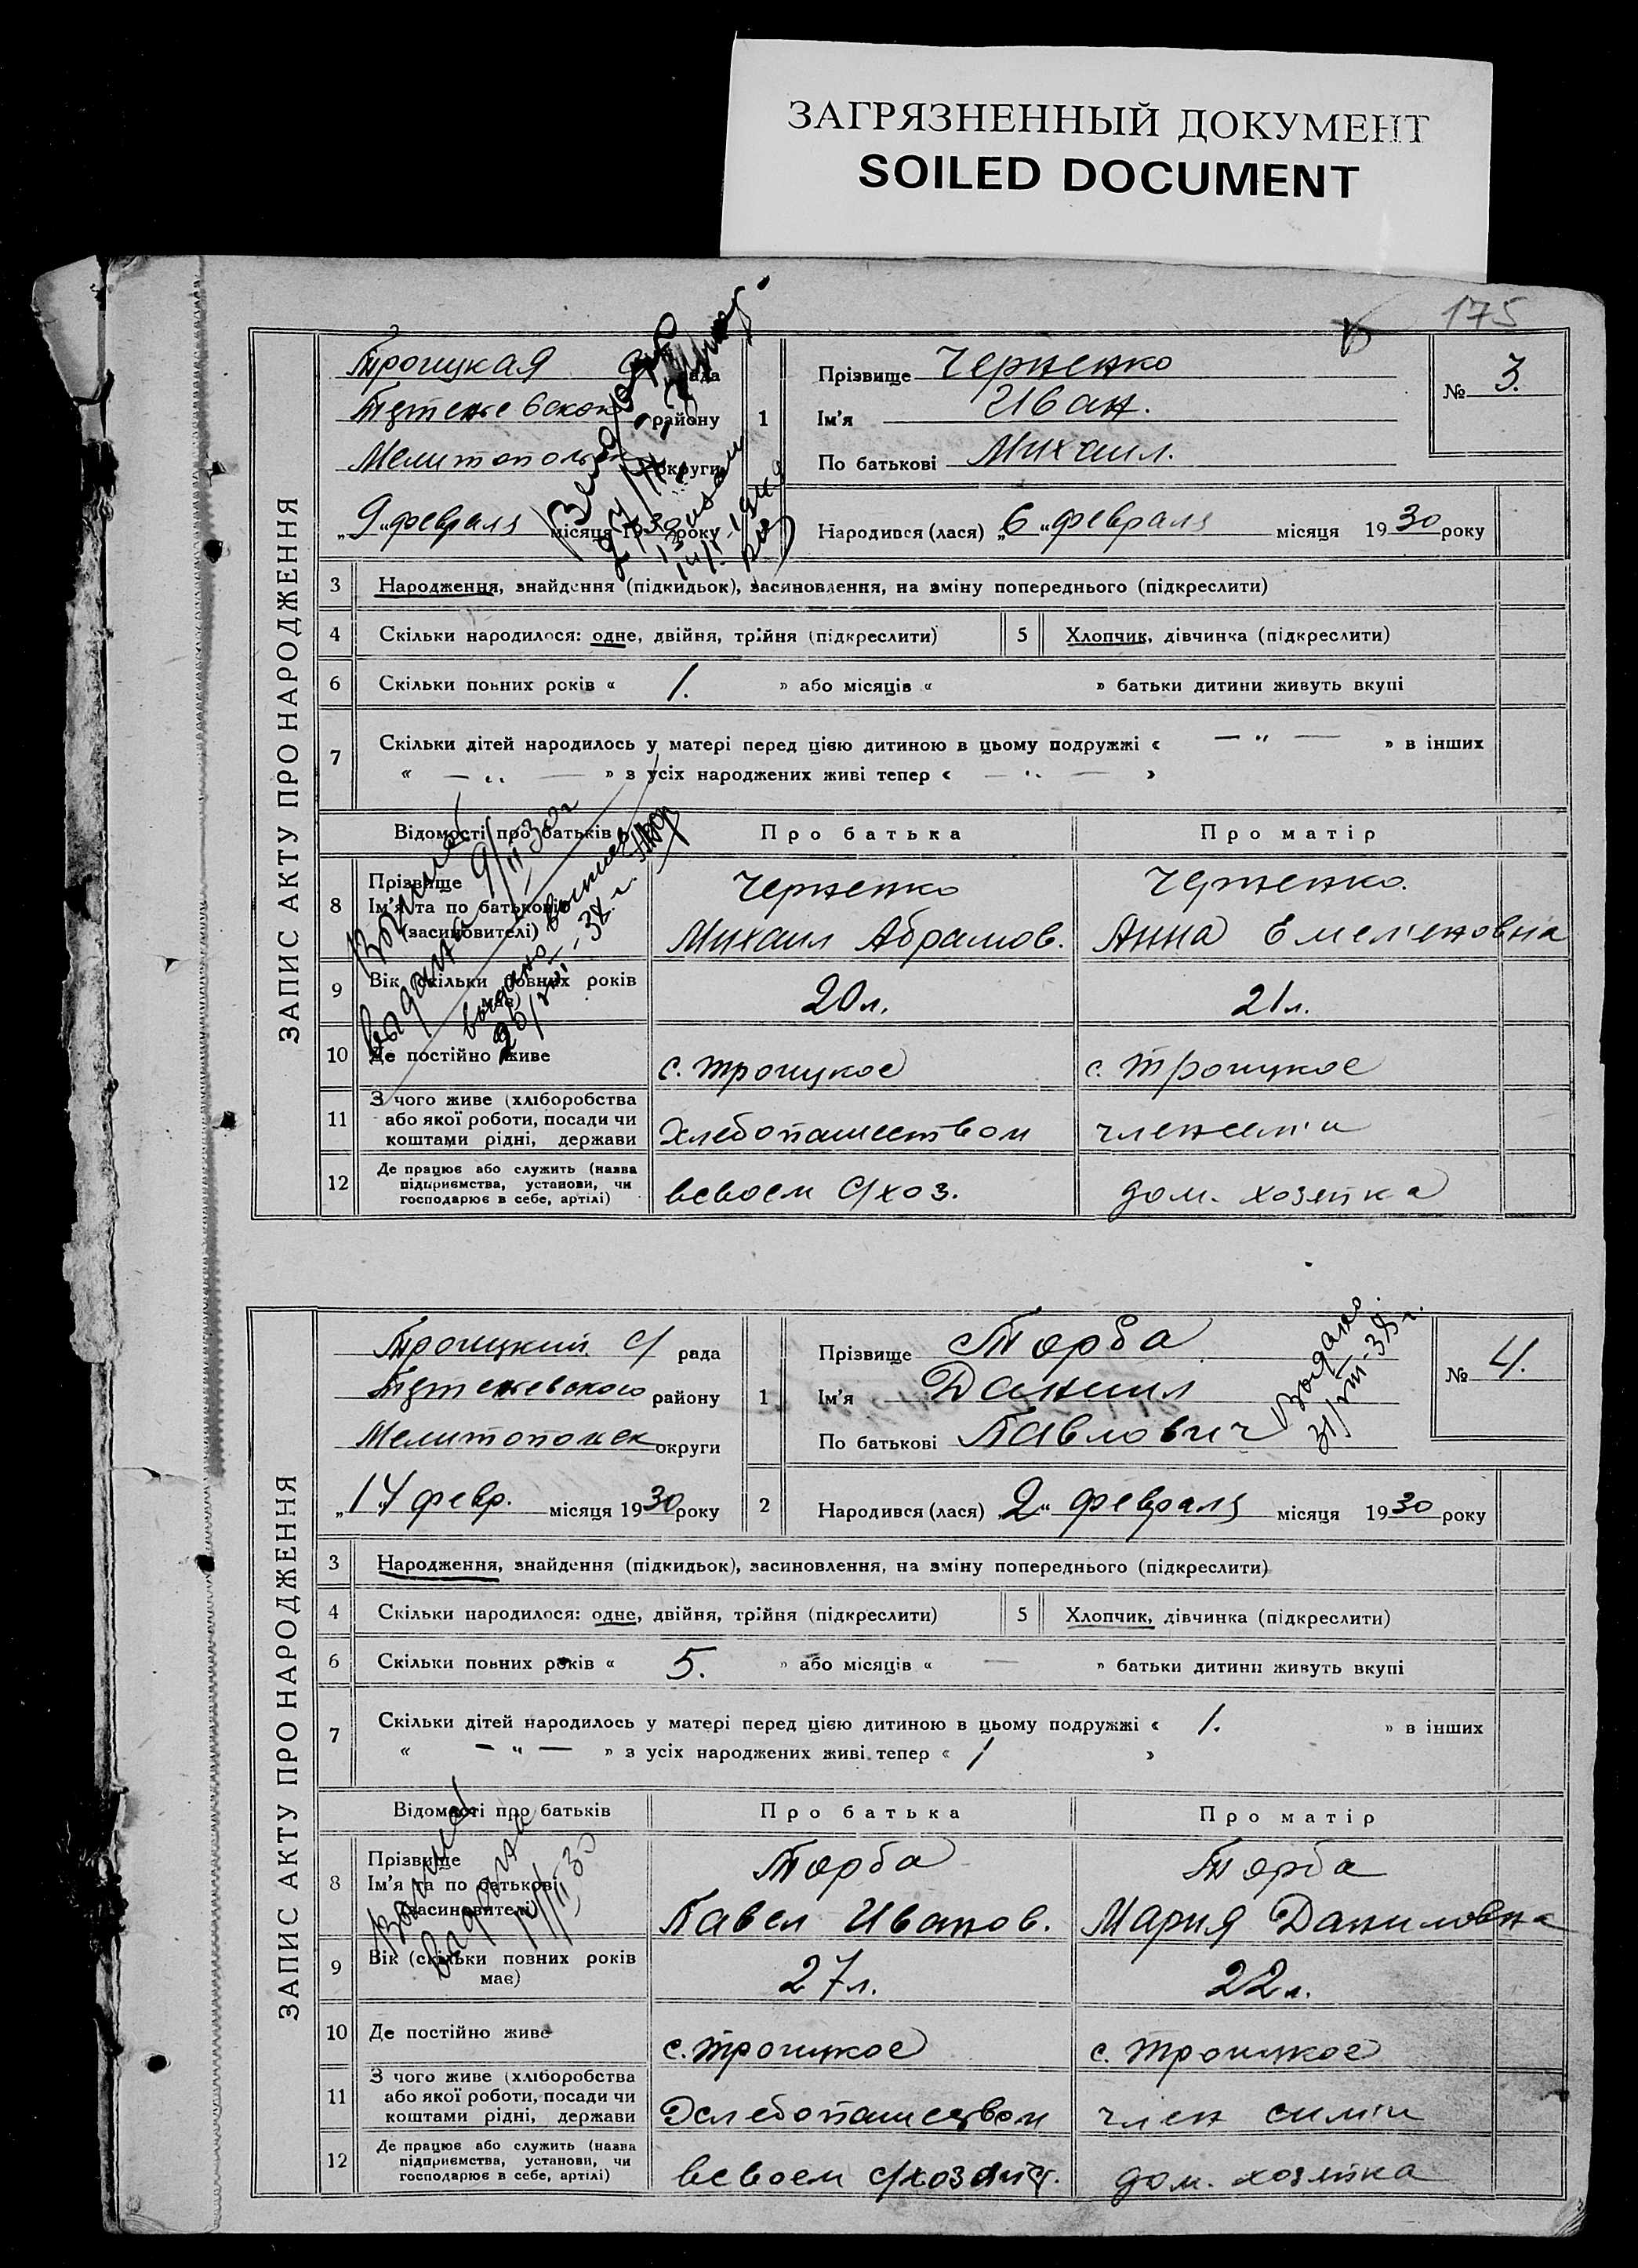 ЗАГРЯЗНЕННЫЙ ДОКУМЕНТ
SOILED DOCUMENT
175
ЗАПИС АКТУ ПРО НАРОДЖЕННЯ
Троицкая рада
району
округи
„9„ февраля місяця 1930 року
1
Прізвище Черненко
Ім'я Иван.
По батькові Михаил.
№ 3.
Народився (лася) „6„ февраля місяця 1930 року
3 Народження, знайдення (підкидьок), засиновлення, на зміну попереднього (підкреслити)
4 Скільки народилося: одне, двійня, трійня (підкреслити) 5 Хлопчик, дівчинка (підкреслити)
6 Скільки повних років « 1. » або місяців « » батьки дитини живуть вкупі
7 Скільки дітей народилось у матері перед цією дитиною в цьому подружжі « — „ — » в інших
« — „ — » з усіх народжених живі тепер « — „ — »
Відомості про батьків Про батька Про матір
8 Прізвище Ім'я та по батькові (засиновителі)
Черненко Черненко.
Михаил Абрамов. Анна Емельеновна
9 Вік (скільки повних років має) 20 л. 21 л.
10 Де постійно живе с. Троицкое с. Троицкое
11 З чого живе (хліборобства
або якої роботи, посади чи
коштами рідні, держави
Хлебопашеством
12 Де працює або служить (назва
підприємства, установи, чи
господарює в себе, артілі)
всвоем с/хоз. дом. хозяйка
выдано
ЗАПИС АКТУ ПРО НАРОДЖЕННЯ
Троицкий с/ рада
району
округи
„14 февр. місяця 1930 року
1
Прізвище Торба
Ім'я Даниил
По батькові Павлович
Выдано.
31/VIII-38 г.
№ 4.
2 Народився (лася) „2„ февраля місяця 1930 року
3 Народження, знайдення (підкидьок), засиновлення, на зміну попереднього (підкреслити)
4 Скільки народилося: одне, двійня, трійня (підкреслити) 5 Хлопчик, дівчинка (підкреслити)
6 Скільки повних років « 5. » або місяців « — » батьки дитини живуть вкупі
7 Скільки дітей народилось у матері перед цією дитиною в цьому подружжі « 1. » в інших
« — „ — » з усіх народжених живі тепер « 1 »
Відомості про батьків Про батька Про матір
8 Прізвище
Ім'я та по батькові
(засиновителі)
Торба Торба
Павел Иванов. Мария Даниловна
9 Вік (скільки повних років
має)
27 л. 22 л.
10 Де постійно живе с. Троицкое с. Троицкое
11 З чого живе (хліборобства
або якої роботи, посади чи
коштами рідні, держави
Хлебопашеством член симьи
12 Де працює або служить (назва
підприємства, установи, чи
господарює в себе, артілі)
всвоем дом. хозяйка